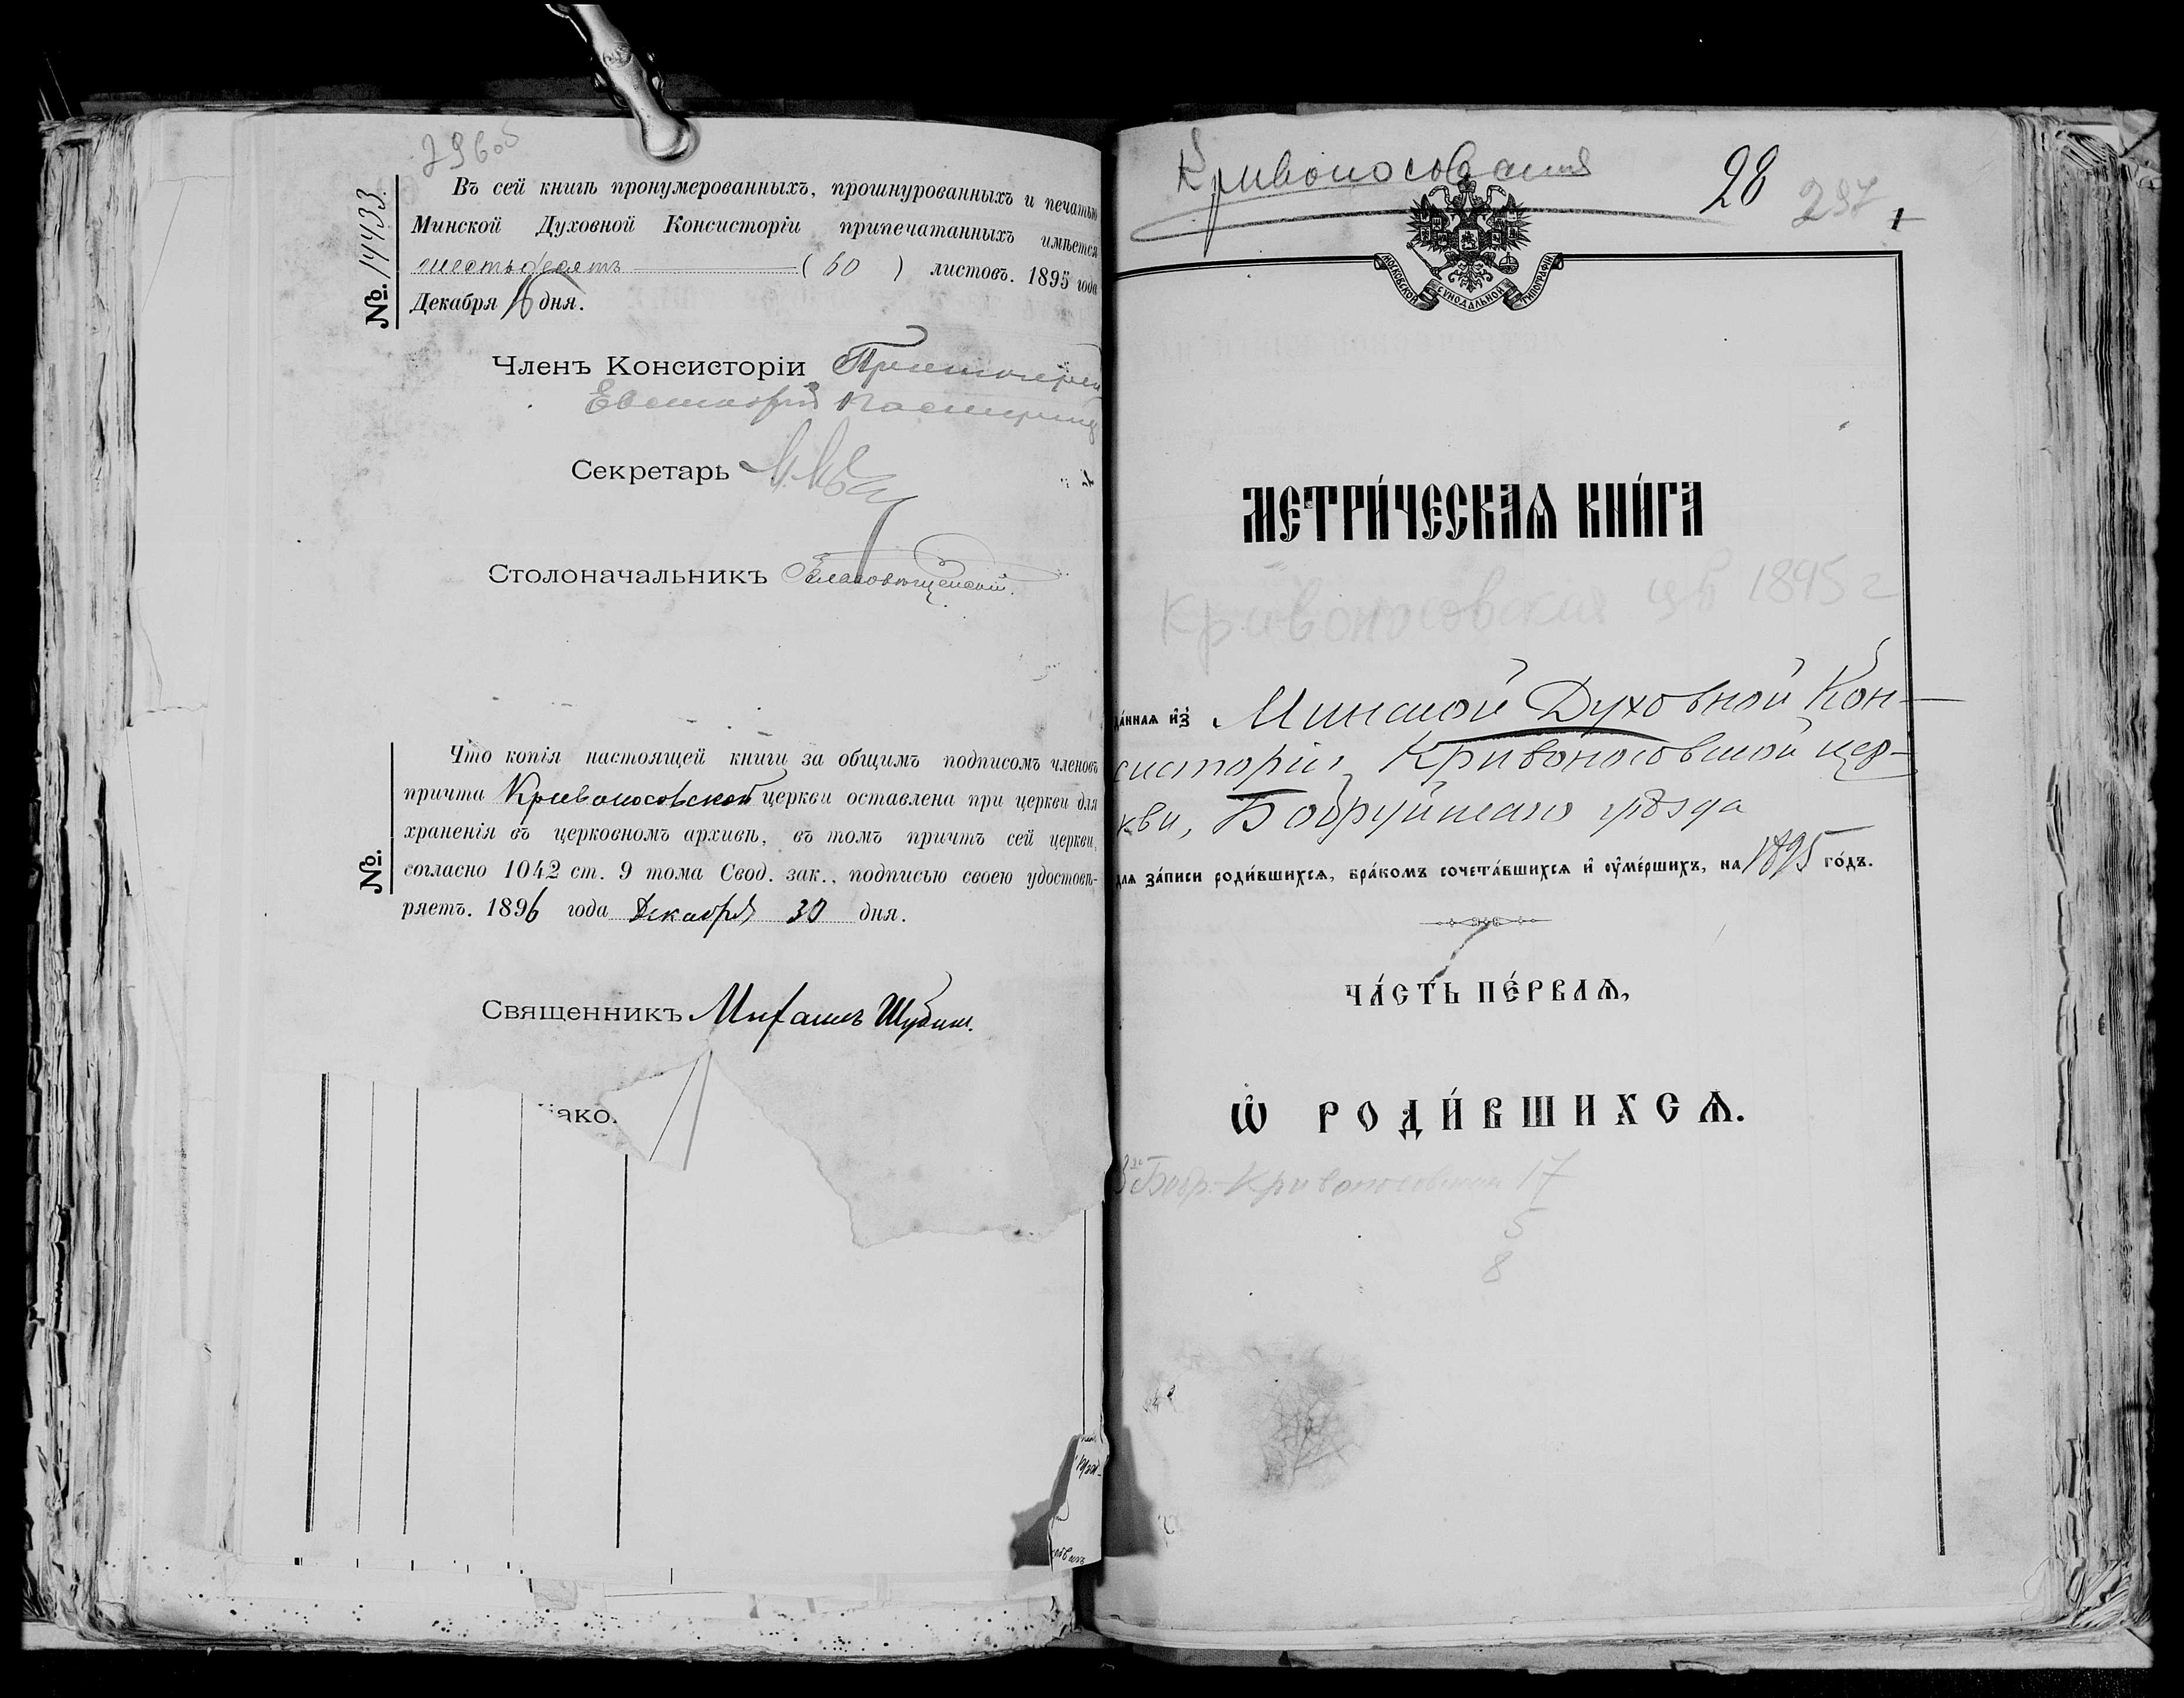 29605
№. 14433.
Въ сей книгѣ пронумерованныхъ, прошнурованныхъ и печатью
Минской Духовной Консисторіи припечатанныхъ имѣется
шестьдесятъ (60) листовъ. 1895 года
Декабря 16 дня.
Членъ Консисторіи Протоіерей
Секретарь
Столоначальникъ Благовѣщенскій.
№.
Что копія настоящей книги за общимъ подписомъ членовъ
причта Кривоносовской церкви оставлена при церкви для
храненія въ церковномъ архивѣ, въ томъ причтъ сей церкви,
согласно 1042 ст. 9 тома Свод. зак., подписью своею удостовѣ-
ряетъ. 1896 года Декабря 30 дня.
Священникъ Михаилъ Шубин.
іако
Кривоносовская
28
297
1
МОСКОВСКОЙ СѴНОДАЛЬНОЙ ТИПОГРАФІИ
МЕТРИ́ЧЕСКАѦ КНИ́ГА
Кривоносовская цв 1895 г
да́ннаѧ и҆з̾ Минской Духовной Кон-
систоріи, Кривоносовской цер-
кви, Бобруйскаго уѣзда
для за́писи роди́вшихсѧ, бра́комъ сочета́вшихсѧ и҆ оу҆ме́ршихъ, на 1895 го́дъ.
ЧА́СТЬ ПЕ́РВАѦ,
Ѡ҆ РОДИ́ВШИХСѦ.
Бобр. Кривоносовская 17
5
8